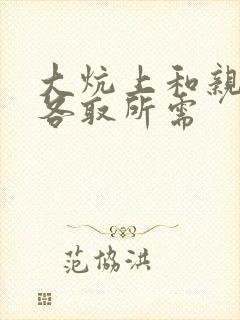 大炕上和親
各取所需
范協洪